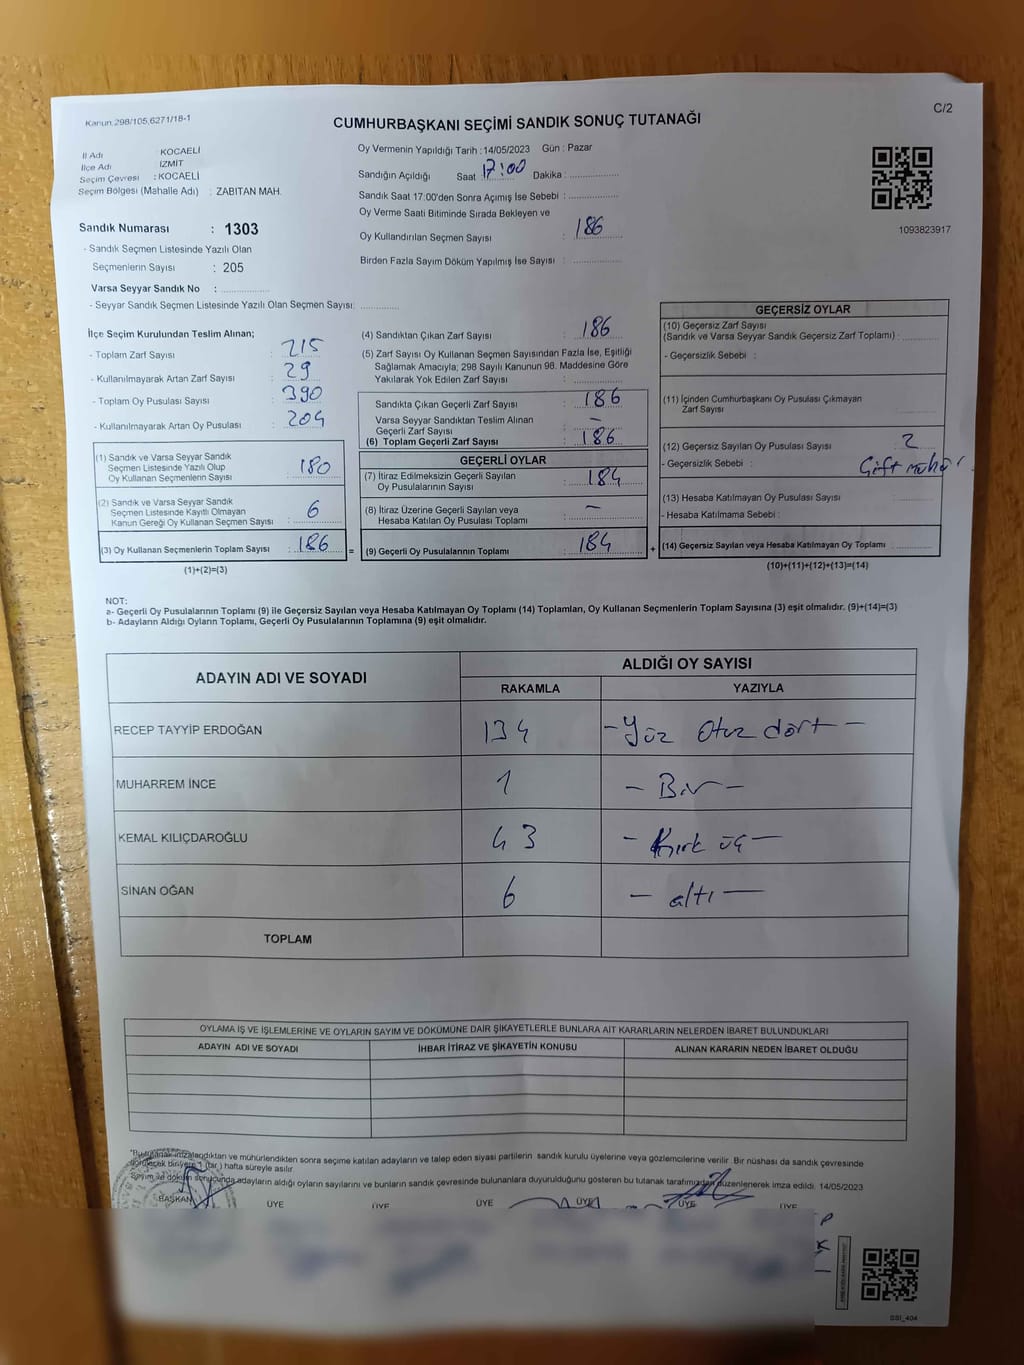 Kanun:298/105,6271/18-1
C/2
CUMHURBAŞKANI SEÇİMİ SANDIK SONUÇ TUTANAĞI
İl Adı KOCAELİ
İlçe Adı İZMİT
Seçim Çevresi : KOCAELİ
Seçim Bölgesi (Mahalle Adı) : ZABITAN MAH.
Sandık Numarası : 1303
- Sandık Seçmen Listesinde Yazılı Olan
Seçmenlerin Sayısı : 205
Varsa Seyyar Sandık No :
- Seyyar Sandık Seçmen Listesinde Yazılı Olan Seçmen Sayısı:
Oy Vermenin Yapıldığı Tarih : 14/05/2023 Gün : Pazar
Sandığın Açıldığı Saat : 17:00 Dakika :
Sandık Saat 17:00'den Sonra Açımış İse Sebebi :
Oy Verme Saati Bitiminde Sırada Bekleyen ve
Oy Kullandırılan Seçmen Sayısı : 186
Birden Fazla Sayım Döküm Yapılmış İse Sayısı :
1093823917
İlçe Seçim Kurulundan Teslim Alınan;
- Toplam Zarf Sayısı : 215
- Kullanılmayarak Artan Zarf Sayısı : 29
- Toplam Oy Pusulası Sayısı : 390
- Kullanılmayarak Artan Oy Pusulası : 204
(1) Sandık ve Varsa Seyyar Sandık
Seçmen Listesinde Yazılı Olup
Oy Kullanan Seçmenlerin Sayısı : 180
(2) Sandık ve Varsa Seyyar Sandık
Seçmen Listesinde Kayıtlı Olmayan
Kanun Gereği Oy Kullanan Seçmen Sayısı : 6
(3) Oy Kullanan Seçmenlerin Toplam Sayısı : 186 =
(1)+(2)=(3)
(4) Sandıktan Çıkan Zarf Sayısı : 186
(5) Zarf Sayısı Oy Kullanan Seçmen Sayısından Fazla İse, Eşitliği
Sağlamak Amacıyla; 298 Sayılı Kanunun 98. Maddesine Göre
Yakılarak Yok Edilen Zarf Sayısı :
Sandıkta Çıkan Geçerli Zarf Sayısı : 186
Varsa Seyyar Sandıktan Teslim Alınan
Geçerli Zarf Sayısı : –
(6) Toplam Geçerli Zarf Sayısı : 186
GEÇERLİ OYLAR
(7) İtiraz Edilmeksizin Geçerli Sayılan
Oy Pusulalarının Sayısı : 184
(8) İtiraz Üzerine Geçerli Sayılan veya
Hesaba Katılan Oy Pusulası Toplamı : –
(9) Geçerli Oy Pusulalarının Toplamı : 184 +
GEÇERSİZ OYLAR
(10) Geçersiz Zarf Sayısı
(Sandık ve Varsa Seyyar Sandık Geçersiz Zarf Toplamı) :
- Geçersizlik Sebebi :
(11) İçinden Cumhurbaşkanı Oy Pusulası Çıkmayan
Zarf Sayısı
(12) Geçersiz Sayılan Oy Pusulası Sayısı : 2
- Geçersizlik Sebebi : Çift mühür
(13) Hesaba Katılmayan Oy Pusulası Sayısı :
- Hesaba Katılmama Sebebi :
(14) Geçersiz Sayılan veya Hesaba Katılmayan Oy Toplamı :
(10)+(11)+(12)+(13)=(14)
NOT:
a- Geçerli Oy Pusulalarının Toplamı (9) ile Geçersiz Sayılan veya Hesaba Katılmayan Oy Toplamı (14) Toplamları, Oy Kullanan Seçmenlerin Toplam Sayısına (3) eşit olmalıdır. (9)+(14)=(3)
b- Adayların Aldığı Oyların Toplamı, Geçerli Oy Pusulalarının Toplamına (9) eşit olmalıdır.
ADAYIN ADI VE SOYADI ALDIĞI OY SAYISI
RAKAMLA YAZIYLA
RECEP TAYYİP ERDOĞAN 134 – Yüz Otuz dört –
MUHARREM İNCE 1 – Bir –
KEMAL KILIÇDAROĞLU 43 – Kırk üç –
SİNAN OĞAN 6 – altı –
TOPLAM
OYLAMA İŞ VE İŞLEMLERİNE VE OYLARIN SAYIM VE DÖKÜMÜNE DAİR ŞİKAYETLERLE BUNLARA AİT KARARLARIN NELERDEN İBARET BULUNDUKLARI
ADAYIN ADI VE SOYADI İHBAR İTİRAZ VE ŞİKAYETİN KONUSU ALINAN KARARIN NEDEN İBARET OLDUĞU
imzalandıktan ve mühürlendikten sonra seçime katılan adayların ve talep eden siyasi partilerin sandık kurulu üyelerine veya gözlemcilerine verilir. Bir nüshası da sandık çevresinde
1 (bir) hafta süreyle asılır.
Sayım ve döküm sonucunda adayların aldığı oyların sayılarını ve bunların sandık çevresinde bulunanlara duyurulduğunu gösteren bu tutanak tarafımızdan düzenlenerek imza edildi. 14/05/2023
BAŞKAN ÜYE ÜYE ÜYE ÜYE ÜYE ÜYE